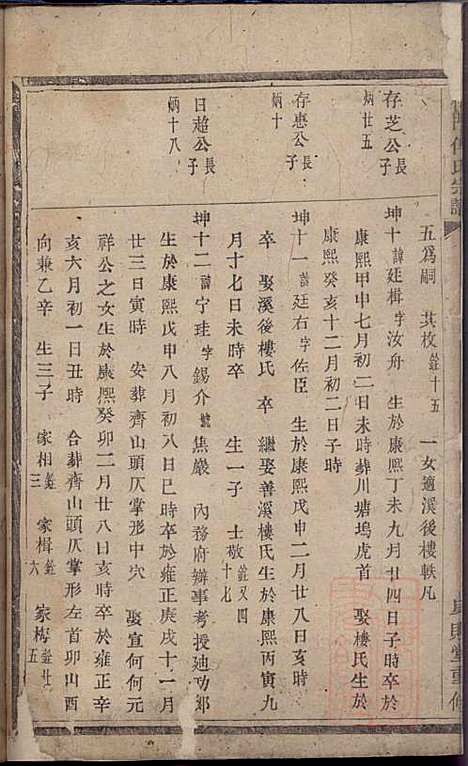 五爲嗣 其枚鉉十五 一女適溪後樓軼凡
存芝公長子
炳廿五
坤十諱廷楫字汝舟 生於康熙丁未九月廿四日子時卒於
康熙甲申七月初二日未時葬川塘塢虎首 娶樓氏生於
康熙癸亥十二月初二日子時
存惠公長子
炳十
坤十一諱廷右字佐臣 生於康熙戊申二月廿八日亥時
卒 娶溪後樓氏 卒 繼娶善溪樓氏生於康熙丙寅九
月十七日未時卒 生一子 士敬鉉又四十七
日超公長子
炳十八
坤十二諱宁珪字錫介號焦巖 內務府辦事考授廸功郎
生於康熙戊申八月初八日巳時卒於雍正庚戌十一月
廿三日寅時 安葬齊山頭仄掌形中穴 娶宣何何元
祥公之女生於康熙癸卯二月廿八日亥時卒於雍正辛
亥六月初一日丑時 合葬齊山頭仄掌形左首卯山酉
向兼乙辛 生三子 家相鉉三 家楫鉉六 家梅鉉廿五